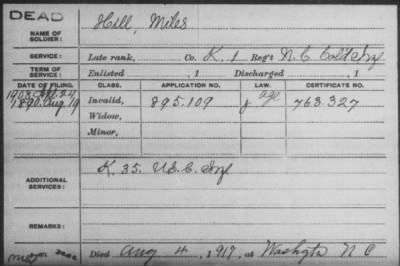 DEAD
NAME OF SOLDIER: Hill, Miles
SERVICE: Late rank, Co. K. 1 Reg't N.C. Cold Inf
TERM OF SERVICE: Enlisted , 1 Discharged , 1
DATE OF FILING. CLASS. APPLICATION NO. LAW. CERTIFICATE NO.
1890. Aug. 19 Invalid, 895.109 age 763.327
Widow,
Minor,
ADDITIONAL SERVICES: K. 35. U.S.C. Inf
REMARKS:
Died Aug 4, 1917, at Washgtn N C